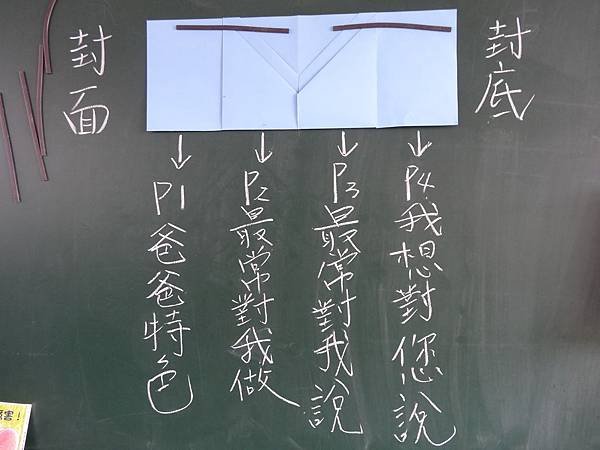 封面
封底
P1爸爸特色
P2最常對我做
P3最常對我說
P4我想對您說